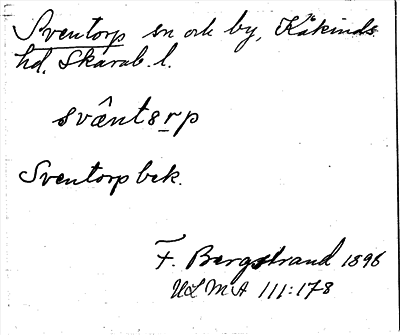 Sventorp sn och by, Kåkinds
hd. Skarab. l.
svæ̂ntsrp
Sventorp bek.
F. Bergstrand 1896
ULMA 111:178